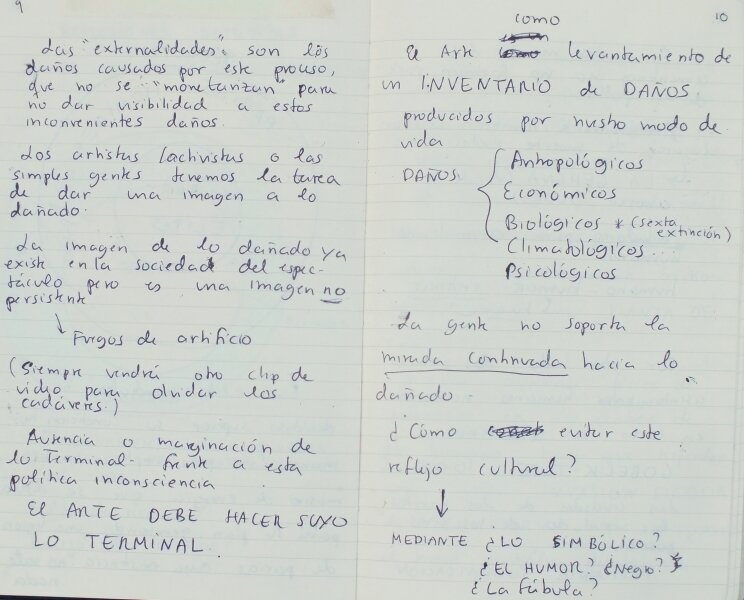 9
Las "externalidades" son los
daños causados por este proceso,
que no se "monetanzan" para
no dar visibilidad a estos
inconvenientes daños.
Los artistas /activistas o las
simples gentes tenemos la tarea
de dar una imagen a lo
dañado.
La imagen de lo dañado ya
existe en la sociedad del espec-
táculo pero es una imagen no
persistente
↓ Fuegos de artificio
(Siempre vendrá otro clip de
video para olvidar los
cadáveres.)
Ausencia o marginación de
lo Terminal- frente a esta
política inconsciencia
EL ARTE DEBE HACER SUYO
LO TERMINAL.
10
como
El Arte levantamiento de
un INVENTARIO de DAÑOS
producidos por nuestro modo de
vida
DAÑOS { Antropológicos
Económicos
Biológicos * (sexta
extinción)
Climatológicos...
Psicológicos
La gente no soporta la
mirada continuada hacia lo
dañado.
¿Cómo evitar este
reflejo cultural?
↓
MEDIANTE ¿LO SIMBÓLICO?
¿EL HUMOR? ¿Negro?
¿La fábula?